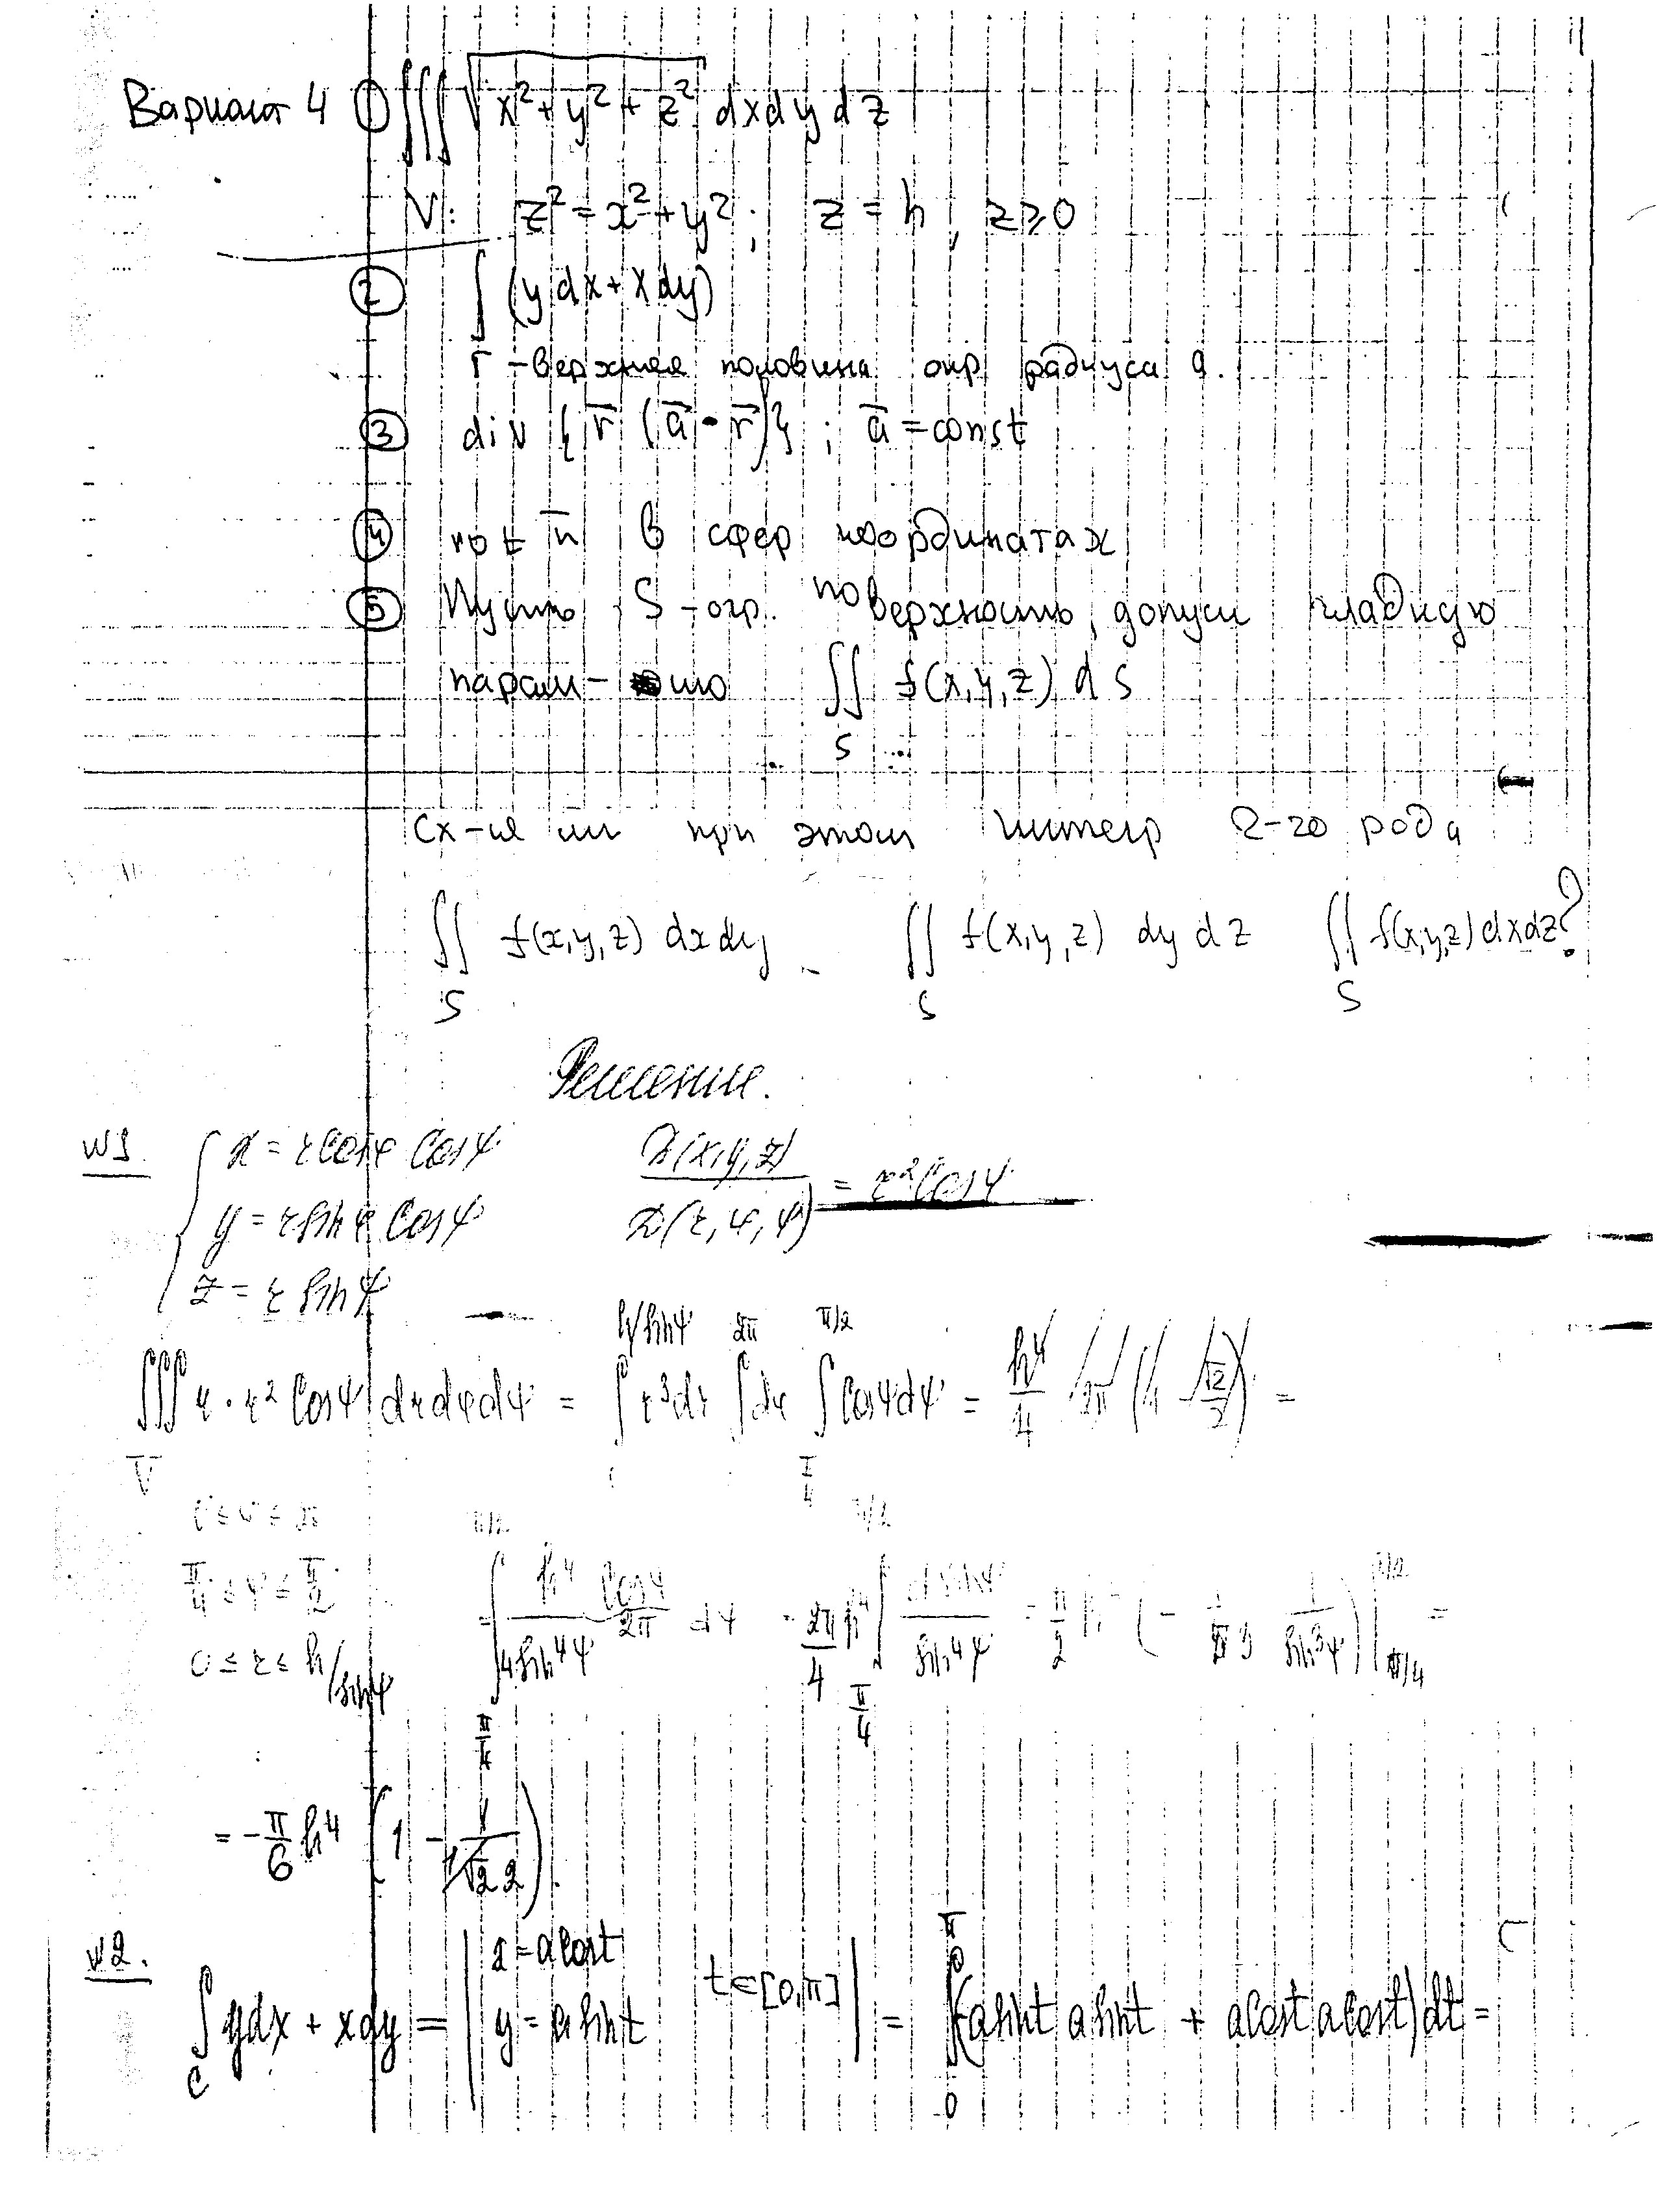 Вариант 4 ① ∭ √(x²+y²+z²) dxdydz
V: z²=x²+y²; z=h, z≥0
② ∫ (ydx+xdy)
Γ-верхняя половина окр радиуса a.
③ div {r̄ (ā•r̄)}; ā=const
④ rot в сфер координатах
⑤ Пусть S-огр. поверхность, допуск гладкую
парам- ∬ f(x,y,z) dS
S
Сх-ся ли при этом интегр 2-го рода
∬ f(x,y,z) dxdy ∬ f(x,y,z) dydz ∬ f(x,y,z)dxdz?
S S S
Решение.
N1. { x=rcosφ cosψ D(x,y,z)/D(r,φ,ψ) = r²cosψ
y=rsinφ cosψ
z=r sinψ
∭ r·r²cosψ drdφdψ = ∫ r³dr ∫dφ ∫cosψdψ = h⁴/4 2π (1-√2/2) =
V
h/sinψ 2π π/2
π/4
π/4≤ψ≤π/2
0≤r≤h/sinψ
= ∫ h⁴cosψ/4sin⁴ψ 2π dψ = 2π/4 h⁴ ∫ dsinψ/sin⁴ψ = π/2 h⁴ (-1/3 1/sin³ψ)|π/2 π/4 =
= -π/6 h⁴ (1 -
N2.
∫ ydx+xdy = | x=acost y=asint t∈[0,π] | = ∫ (asint asint + acost acost)dt =
C π 0